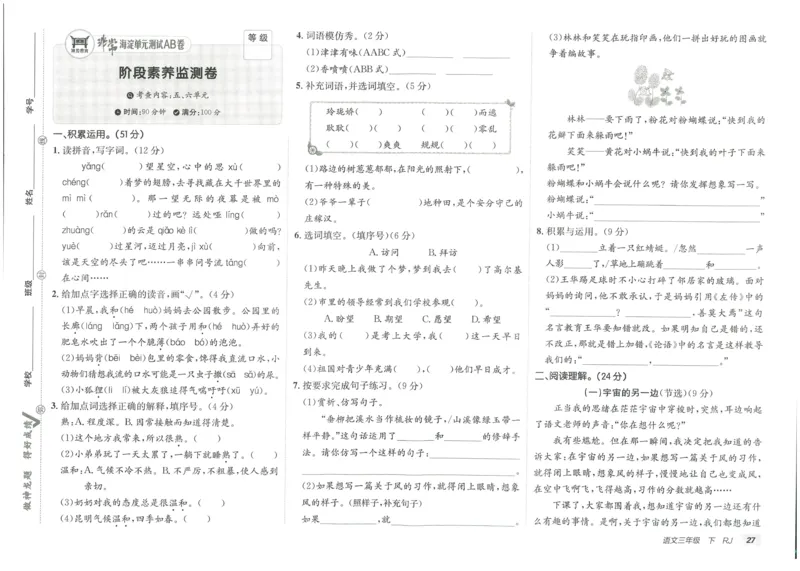 海淀单元测试AB卷
等级
阶段素养监测卷
考查内容:五、六单元
时间:90分钟 满分:100分
一、积累运用。(51分)
1.读拼音,写字词。(12分)
yǎng( )望星空,心中的思xù( )
chéng( )着梦的翅膀,去寻找藏在大千世界的
mì mì( )。那一望无际的夜幕是被mò
( )rǎn( )过的吧?远处哐líng( )
zhuàng( )的云是qiǎo kè lì( )做的吗?
yuè( )过星河,迈过月亮,jì xù( )向前,
该是天空的尽头了吧……一串串问号流tǎng( )
在心间……
2.给加点字选择正确的读音,画“√”。(4分)
(1)早晨,我和(hé huò)妈妈去公园散步。公园里的
长廊(láng lǎng)下,两个孩子用和(hé huò)弄好的
肥皂水吹出了一个个脆薄(báo bó)的泡泡。
(2)妈妈背(bēi bèi)包里的零食,馋得我直流口水,小
动物们猜想我流的口水可能是一只虫子撒(sā sǎ)的尿。
(3)小狐狸(li lí)被大灰狼追得气喘吁吁(xū yú)。
3.给加点词选择正确的解释,填序号。(4分)
熟:A.程度深。B.因常接触而知道得清楚。
(1)这个地方我常来,所以很熟。( )
(2)小弟弟玩了一天太累了,一躺下就睡熟了。( )
温和:A.气候不冷不热。B.不严厉,不粗暴,使人感到
亲切。
(3)奶奶对我的态度总是很温和。( )
(4)昆明气候温和,四季如春。( )
4.词语模仿秀。(2分)
(1)津津有味(AABC式)
(2)香喷喷(ABB式)
5.补充词语,并选词填空。(5分)
玲珑娇( ) ( )( )而逃
耿耿( )( ) ( )( )零乱
( )( )爽爽 规规( )( )
(1)路边的树葱葱郁郁,在阳光的照射下,( ),
有一种特殊的美。
(2)爷爷一辈子( )地种田,是个安分守己的
庄稼汉。
6.选词填空。(填序号)(6分)
A.访问 B.拜访
(1)昨天晚上我做了个梦,梦到我去( )了高尔基
先生。
(2)市里的领导经常到我们学校参观( )。
A.盼望 B.期望 C.愿望 D.希望
(3)我的( )是考上大学,我( )这一天早日
到来。
(4)祖国对青少年充满( ),( )他们早日成才。
7.按要求完成句子练习。(9分)
(1)赏析、仿写句子。
“垂柳把溪水当作梳妆的镜子,/山溪像绿玉带一
样平静。”这句话运用了 和 的修辞手
法。请你仿写一个这样的句子:
。
(2)如果想写一篇关于风的习作,就得闭上眼睛,想象
风的样子。(照样子,补充句子)
如果 ,就 。
(3)林林和笑笑在玩指印画,他们一拼出好玩的图画就
争着编故事。
林林——要下雨了,粉花对粉蝴蝶说:“快到我的
花瓣下面来躲雨吧!”
笑笑——黄花对小蜗牛说:“快到我的叶子下面来
躲雨吧!”
粉蝴蝶和小蜗牛会说什么呢?请你发挥想象写一写。
粉蝴蝶说:“ ”
小蜗牛说:“ ”
8.积累与运用。(9分)
(1) 立着一只红蜻蜓。/忽然 一声
人影 了,/草地上蹦跳着 和 。
(2)王华踢足球时不小心打碎了邻居家的玻璃。面对
妈妈的询问,他不敢承认,于是妈妈引用《左传》中的
“ ? ,善莫大焉”这句
名言教育王华要知错就改。如果明知自己是错的,还
不改正,那就是错上加错,《论语》中的名言是这样教导
我们的:“ , 。”
二、阅读理解。(24分)
(一)宇宙的另一边(节选)(9分)
正当我的思绪在茫茫宇宙中穿梭时,突然,耳边响起
了语文老师的声音:“你在想什么呢?”
我有些尴尬。但在那一瞬间,我决定把我知道的告
诉大家:在宇宙的另一边,如果想写一篇关于风的习作,
就得闭上眼睛,想象风的样子,慢慢地让自己也变成风,
在空中飞啊飞,飞得越高,习作的分数就越高……
下课了,大家都围着我,想知道宇宙的另一边还有什
么有趣的事情。是啊,关于宇宙的另一边,我们都想知道
语文三年级 下 RJ 27
学号
姓名
班级
学校
做神龙题 得好成绩